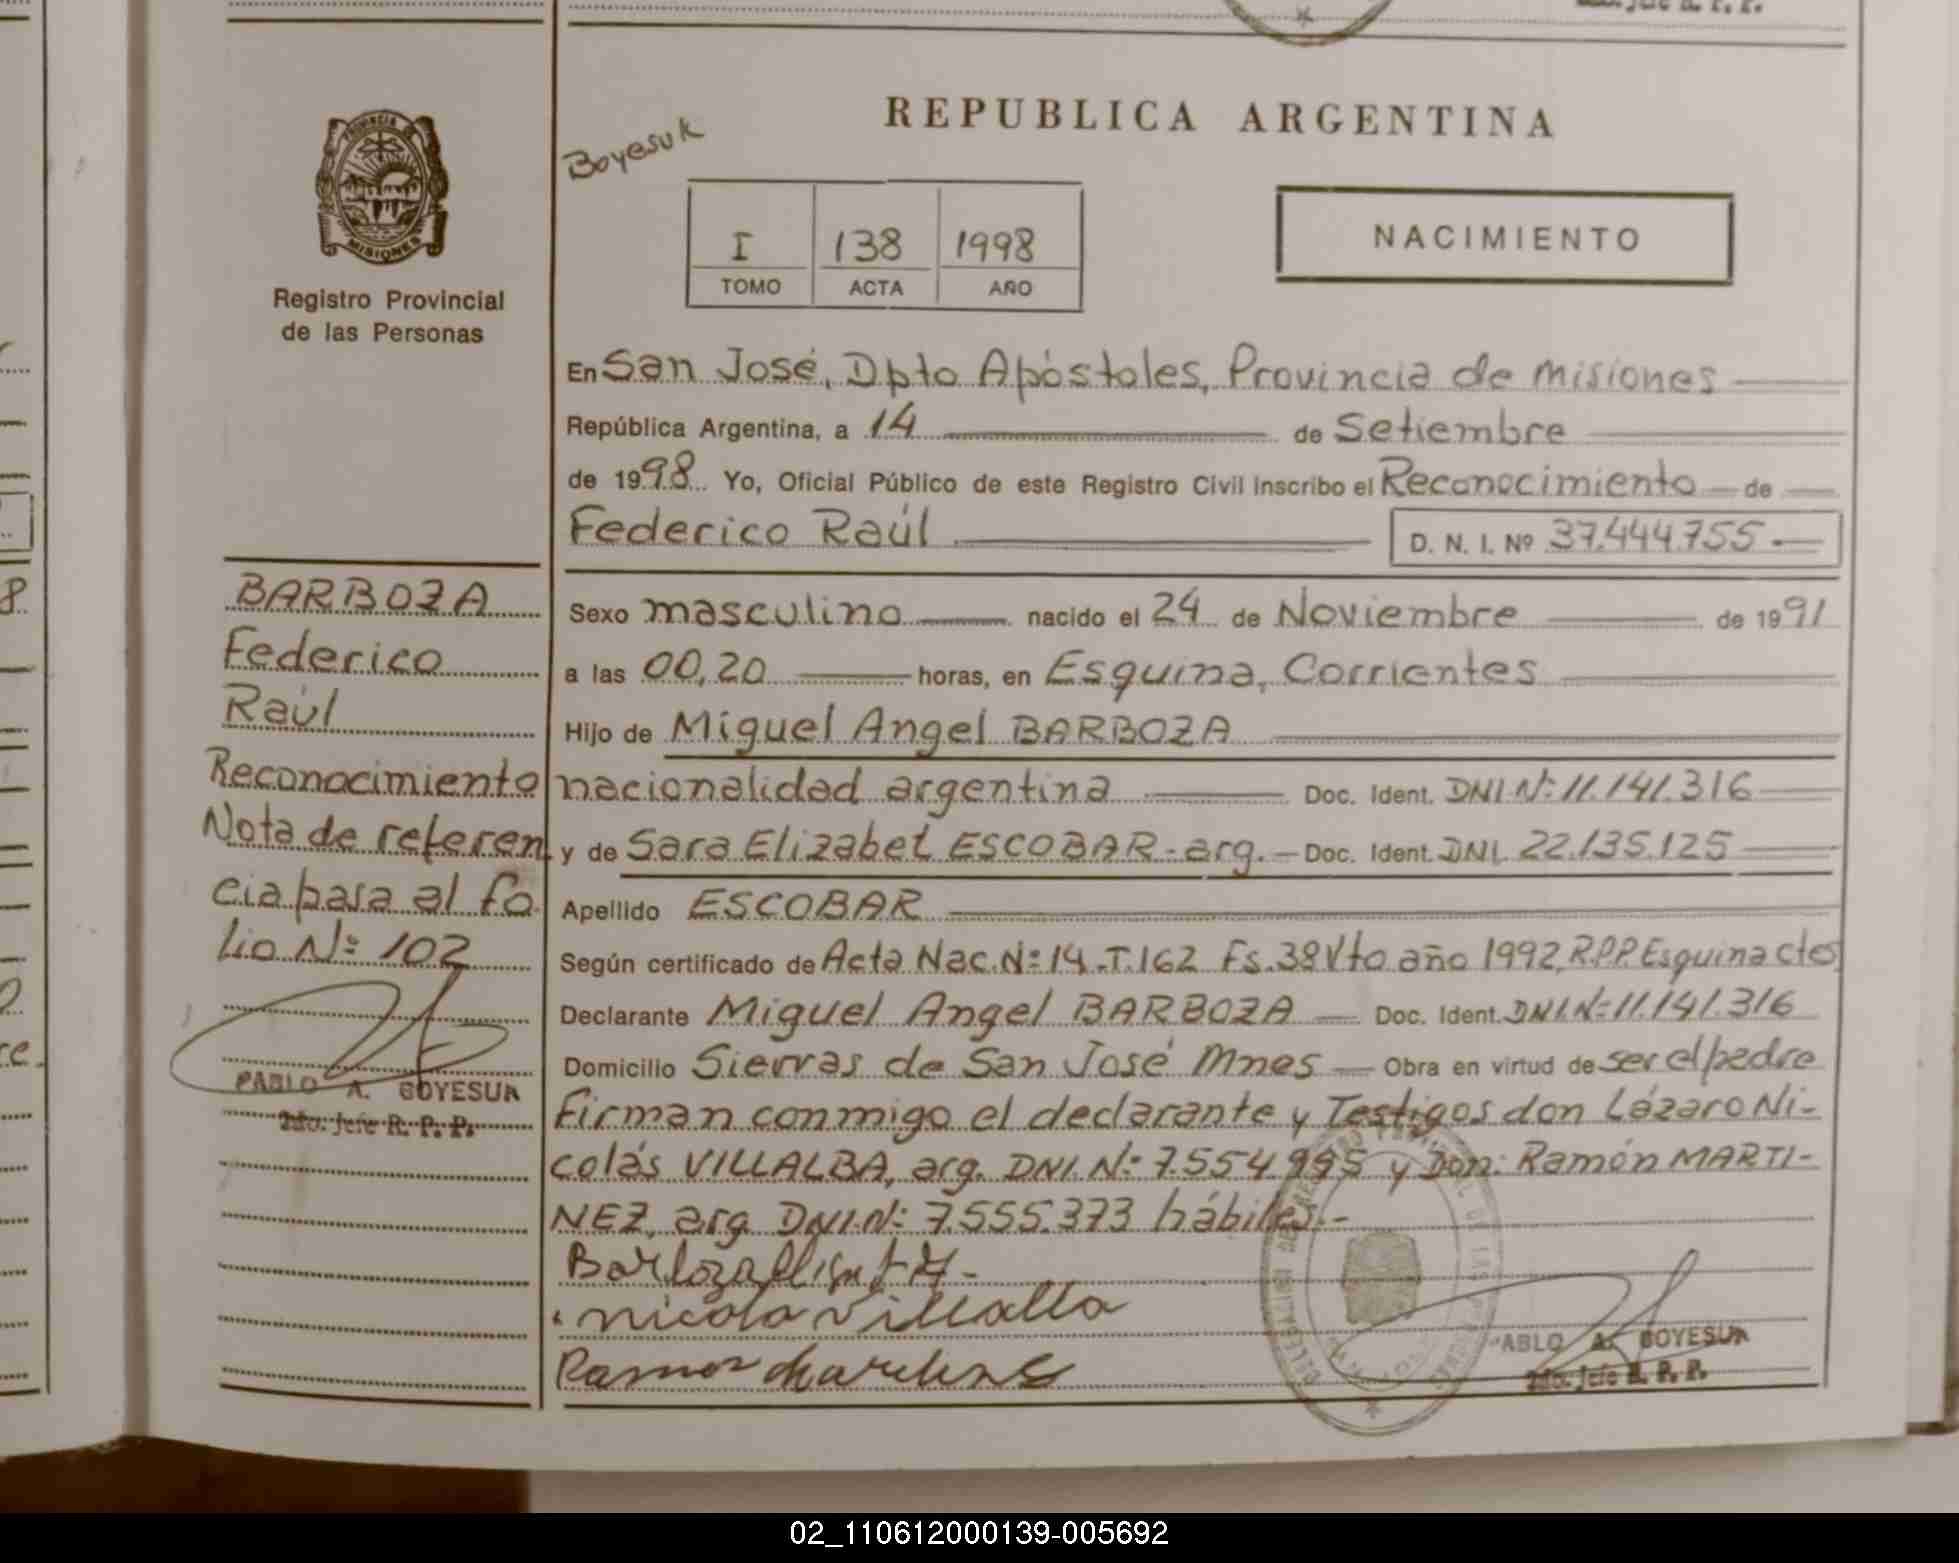 REPUBLICA ARGENTINA
Boyesuk
PROVINCIA DE
MISIONES
Registro Provincial
de las Personas
I 138 1998
TOMO ACTA AÑO
NACIMIENTO
En San José, Dpto Apóstoles, Provincia de Misiones
República Argentina, a 14 de Setiembre
de 1998 Yo, Oficial Público de este Registro Civil inscribo el Reconocimiento de
Federico Raúl D. N. I. Nº 37.444.755.-
BARBOZA
Federico
Raúl
Reconocimiento
Nota de referen
cia pasa al fo
lio Nº 102
PABLO A. BOYESUK
2do. Jefe R. P. P.
Sexo masculino nacido el 24 de Noviembre de 1991
a las 00,20 horas, en Esquina, Corrientes
Hijo de Miguel Angel BARBOZA
nacionalidad argentina Doc. Ident. DNI Nº 11.141.316
y de Sara Elizabet ESCOBAR - arg. - Doc. Ident. DNI. 22.135.125
Apellido ESCOBAR
Según certificado de Acta Nac. Nº 14.T.162 Fs.38Vto año 1992, R.P.P. Esquina Ctes
Declarante Miguel Angel BARBOZA Doc. Ident. DNI.Nº 11.141.316
Domicilio Sierras de San José Mnes Obra en virtud de ser el padre
Firman conmigo el declarante y Testigos don Lázaro Ni-
colás VILLALBA, arg. DNI. Nº 7.554.995 y Don: Ramón MARTI-
NEZ, arg. DNI.Nº 7.555.373 hábiles.-
Nicola Villalba
PABLO A. BOYESUK
2do. Jefe R. P. P.
02_110612000139-005692